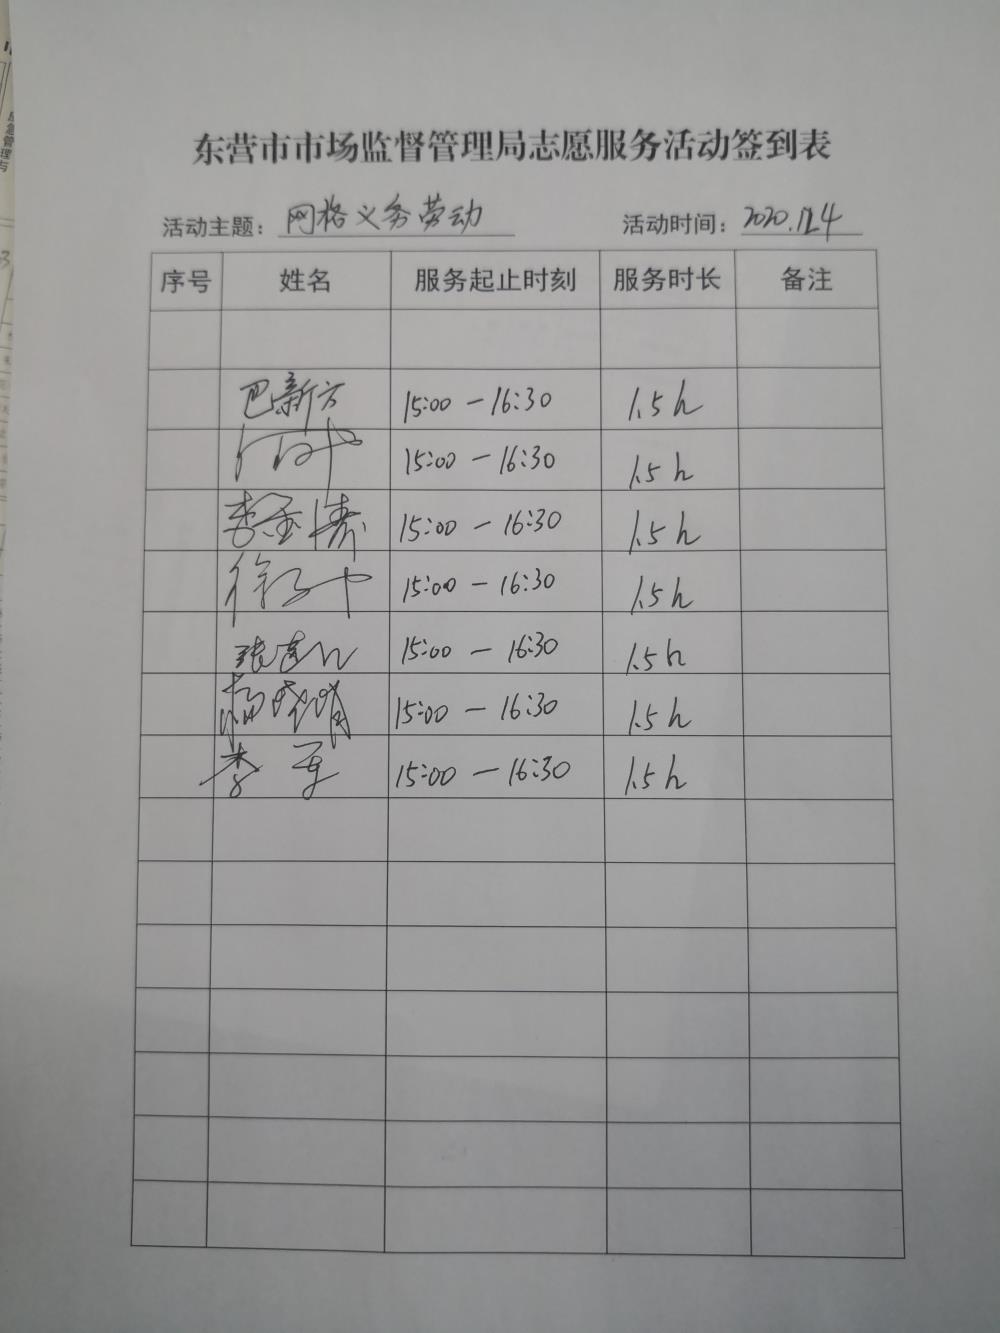 东营市市场监督管理局志愿服务活动签到表
活动主题：网格义务劳动 活动时间：2020.12.4
序号 姓名 服务起止时刻 服务时长 备注
巴新方 15:00 — 16:30 1.5h
15:00 — 16:30 1.5h
李金涛 15:00 — 16:30 1.5h
徐 15:00 — 16:30 1.5h
张 15:00 — 16:30 1.5h
杨晓明 15:00 — 16:30 1.5h
李军 15:00 — 16:30 1.5h
应急管理与